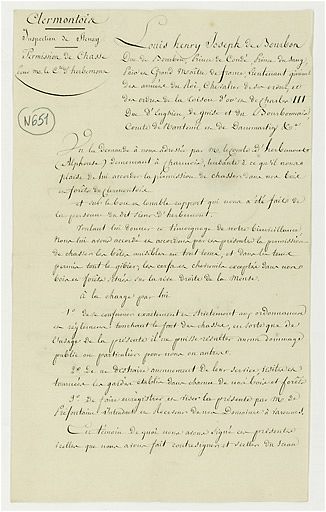 Clermontois
Inspection de Stenay
Permission de Chasse
pour M. le Cte d'herbemont
N651
Louis henry Joseph de Bourbon
Duc de Bourbon, Prince de Condé, Prince du Sang
Pair et Grand Maître de france, Lieutenant général
des armées du Roi, Chevalier de ses ordres, et
des ordres de la toison d'or et de Charles III
Duc d'Enghien, de guise et du Bourbonnais
Comte de Nanteuil et de Dammartin &a
Vu la demande à nous adressée par M. le Comte d'herbemont
(Alphonse) demeurant à Charmois, tendante à ce qu'il nous
plaise de lui accorder la permission de chasser dans nos bois
et forêts du Clermontois
et sur le bon et louable rapport qui nous a été fait de
la personne du dit sieur d'herbemont.
Voulant lui donner ce témoignage de notre bienveillance,
Nous lui avons accordé et accordons par ces présentes la permission
de chasser les bêtes nuisibles en tout tems, et dans les tems
permis tout le gibier, les cerfs et chevreuils exceptés dans nos
bois et forêts situés sur la rive Droite de la Meuse
à la charge par lui
1° De se conformer exactement et strictement aux ordonnances
et règlements touchant le fait des chasses, en sorte que de
l'usage de la présente il ne puisse résulter aucun dommage
public ou particulier pour nous ou autres.
2° De ne destraire aucunement de leur service, visites et
tournées les gardes établis dans chacun de nos bois et forêts
3° De faire enregistrer et viser la présente par M. de
Préfontaine, Intendant et Receveur de nos Domaines à Varennes.
En témoin de quoi nous avons signé ces présentes
icelles que nous avons fait contresigner et sceller du sceau